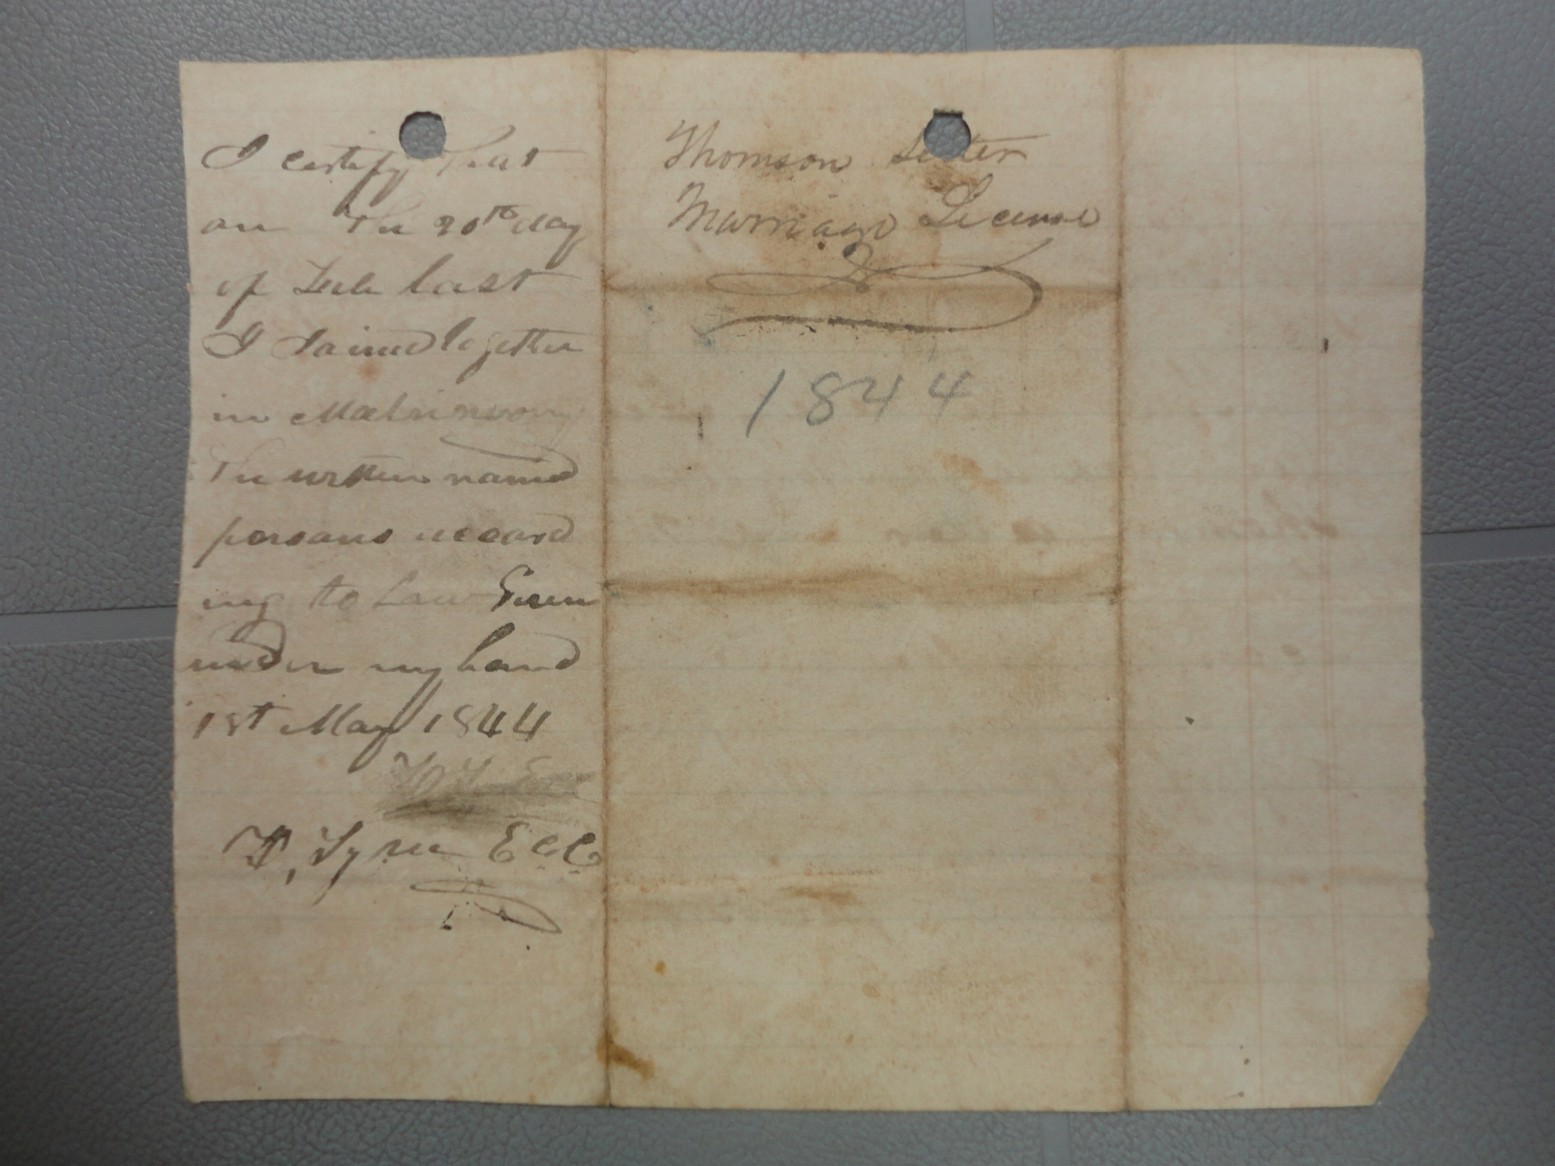 I certify that
on the 20th day
of Feb last
I Joined together
in Matrimony
the written named
persons accord
ing to Law Given
under my hand
1st May 1844
T, Tyre E.C.C.
Thomson Lister
Marriage License
1844